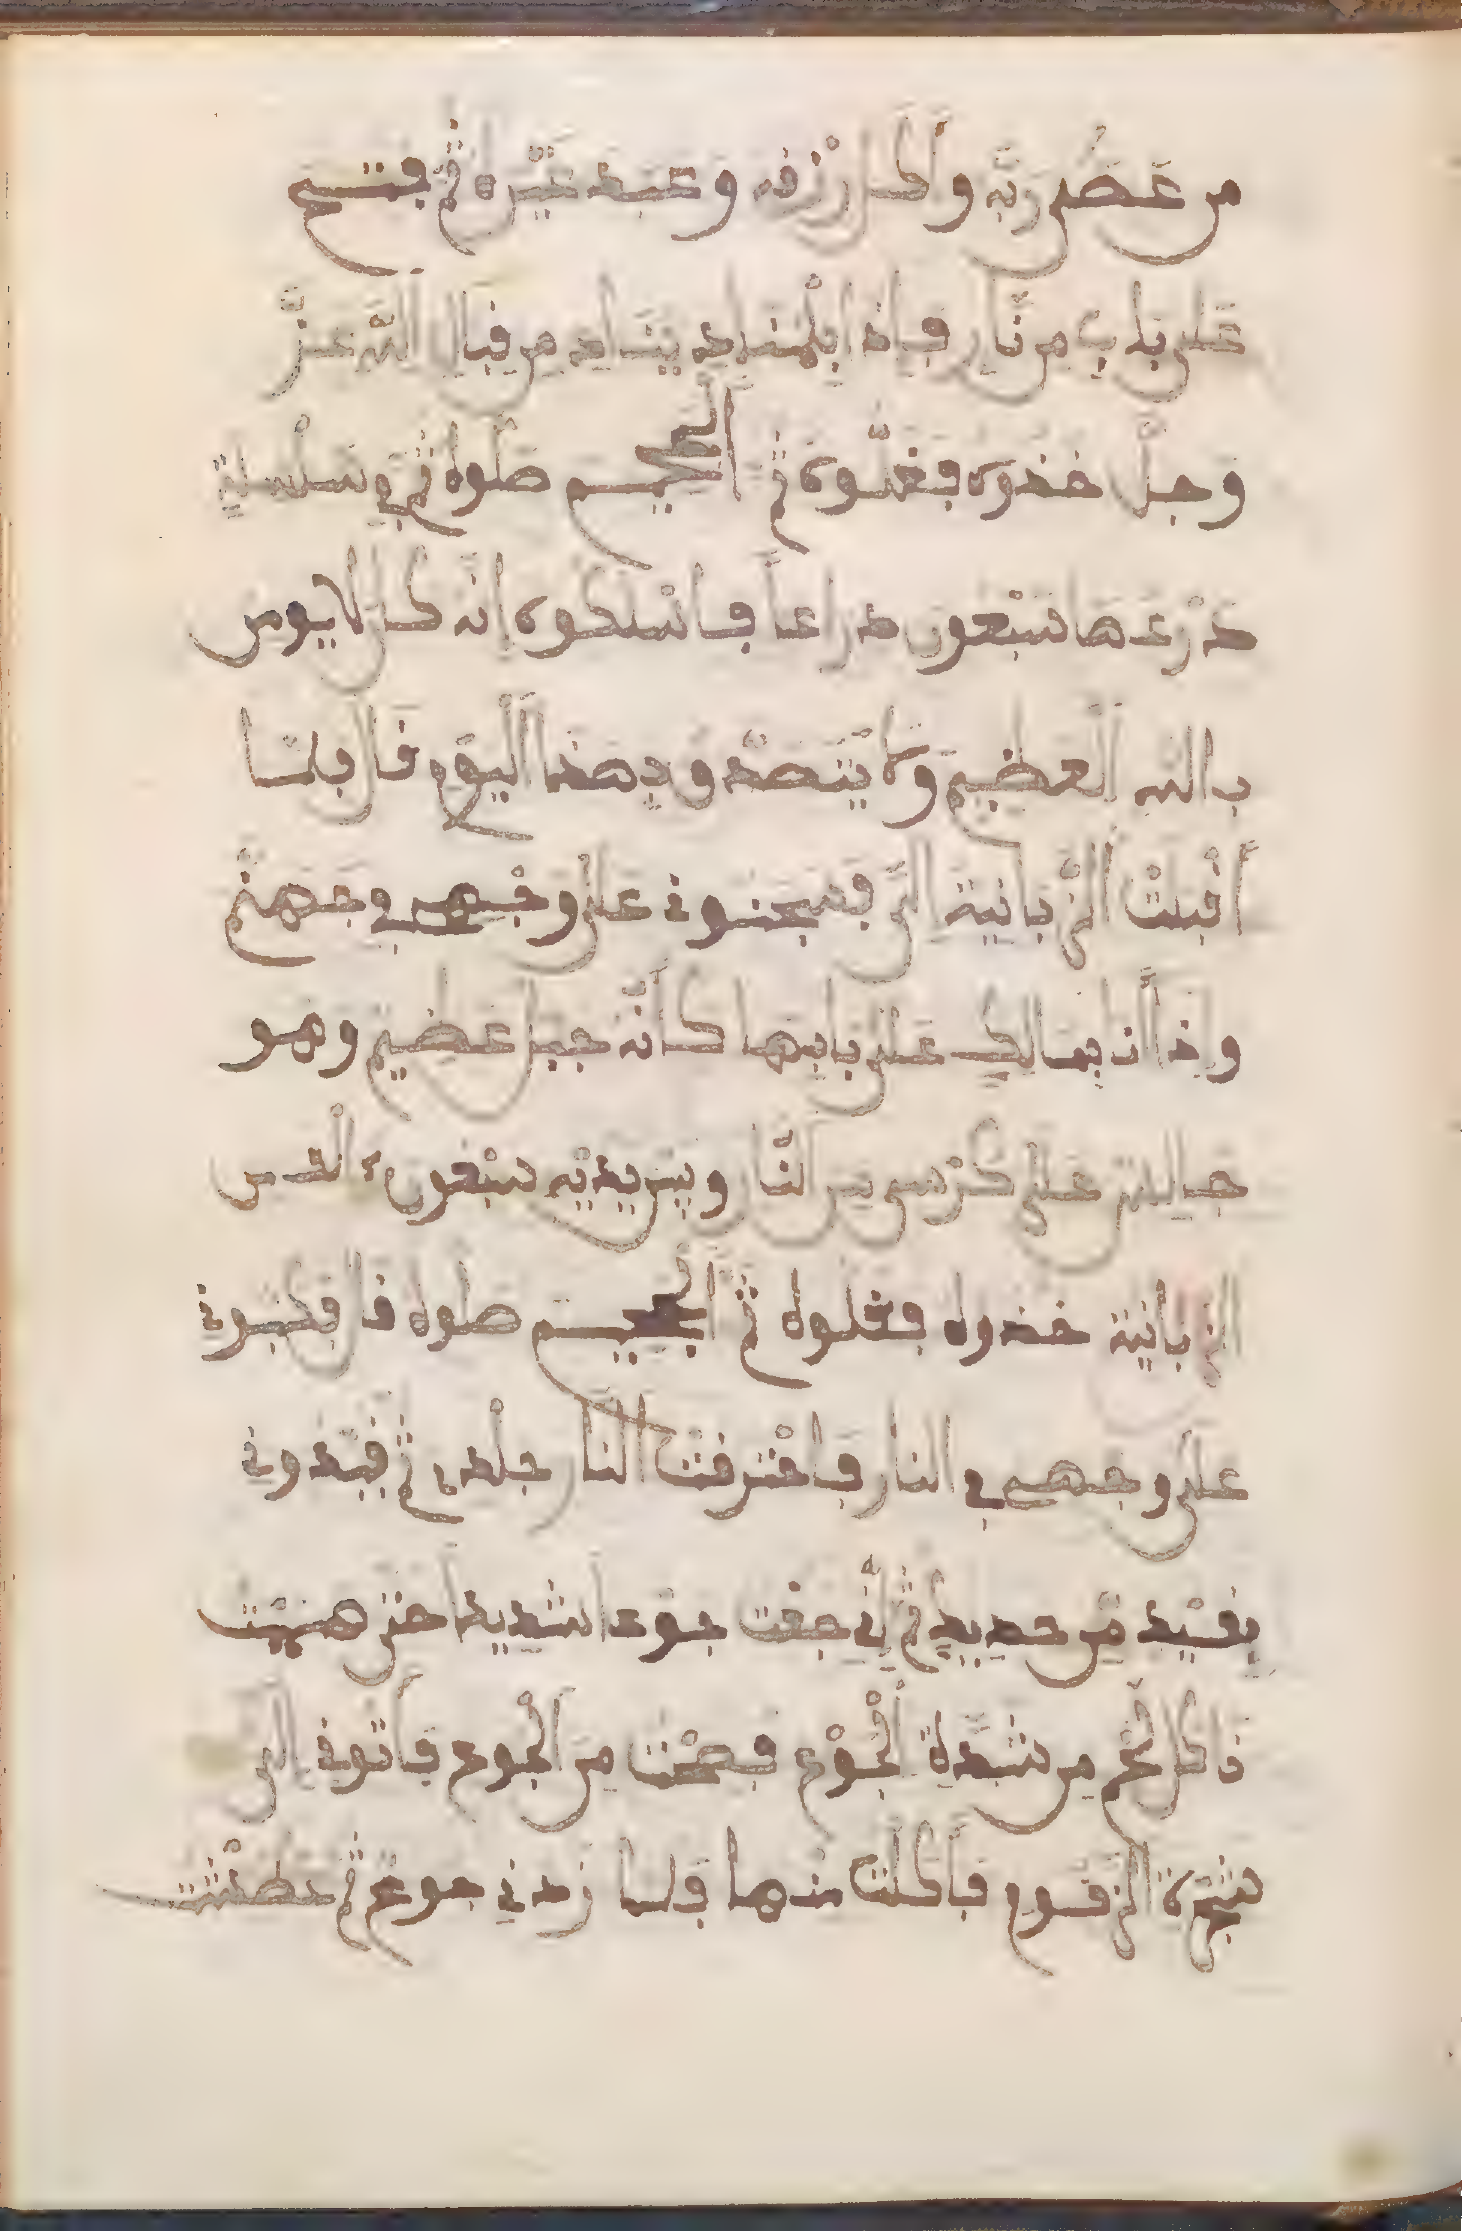 من عَصَى رَبَّه وأكل رزقه وعبد غَيْره ثم فتح
على باب من نَّار فإذا بِالْمناد ينادِ من قبل اللَّه عزَّ
وجلّ خذوه فغلّوه ثم الجحيم صلّوه ثم في سلسلةٍ
ذَرْعها سَبْعون ذراعاً فاسْلكوه إنّه كان لا يومن
بالله العظيم ولا يَتَصَدّق وبهذا اليَوْم قال فلمّا
أقْبلتْ الزَّبانية إلَيَّ فسحبوني على وجْهي في جهنّم
وإذا أنا بمالك على بابها كأنّه جبل عظيم وهو
جالس على كرْسي من النَّار وبين يديْه سبْعون ألف من
الزبانية خذوه فغلوه ثم الجحيم صلوه قال فكبوني
على وجهي في النار فاحْترقت النَّار جلْدي ثم قيّدوني
بقيْد من حديد ثم إنّي جعت جوعا شديدا حتى هممْت
ذاكل لحْمي من شدّة الجُوْع فصحْت من الجوع فأتوني إلى
شجرة الزقوم فأكلت منها فلما زادني جوعي ثم عطشْت